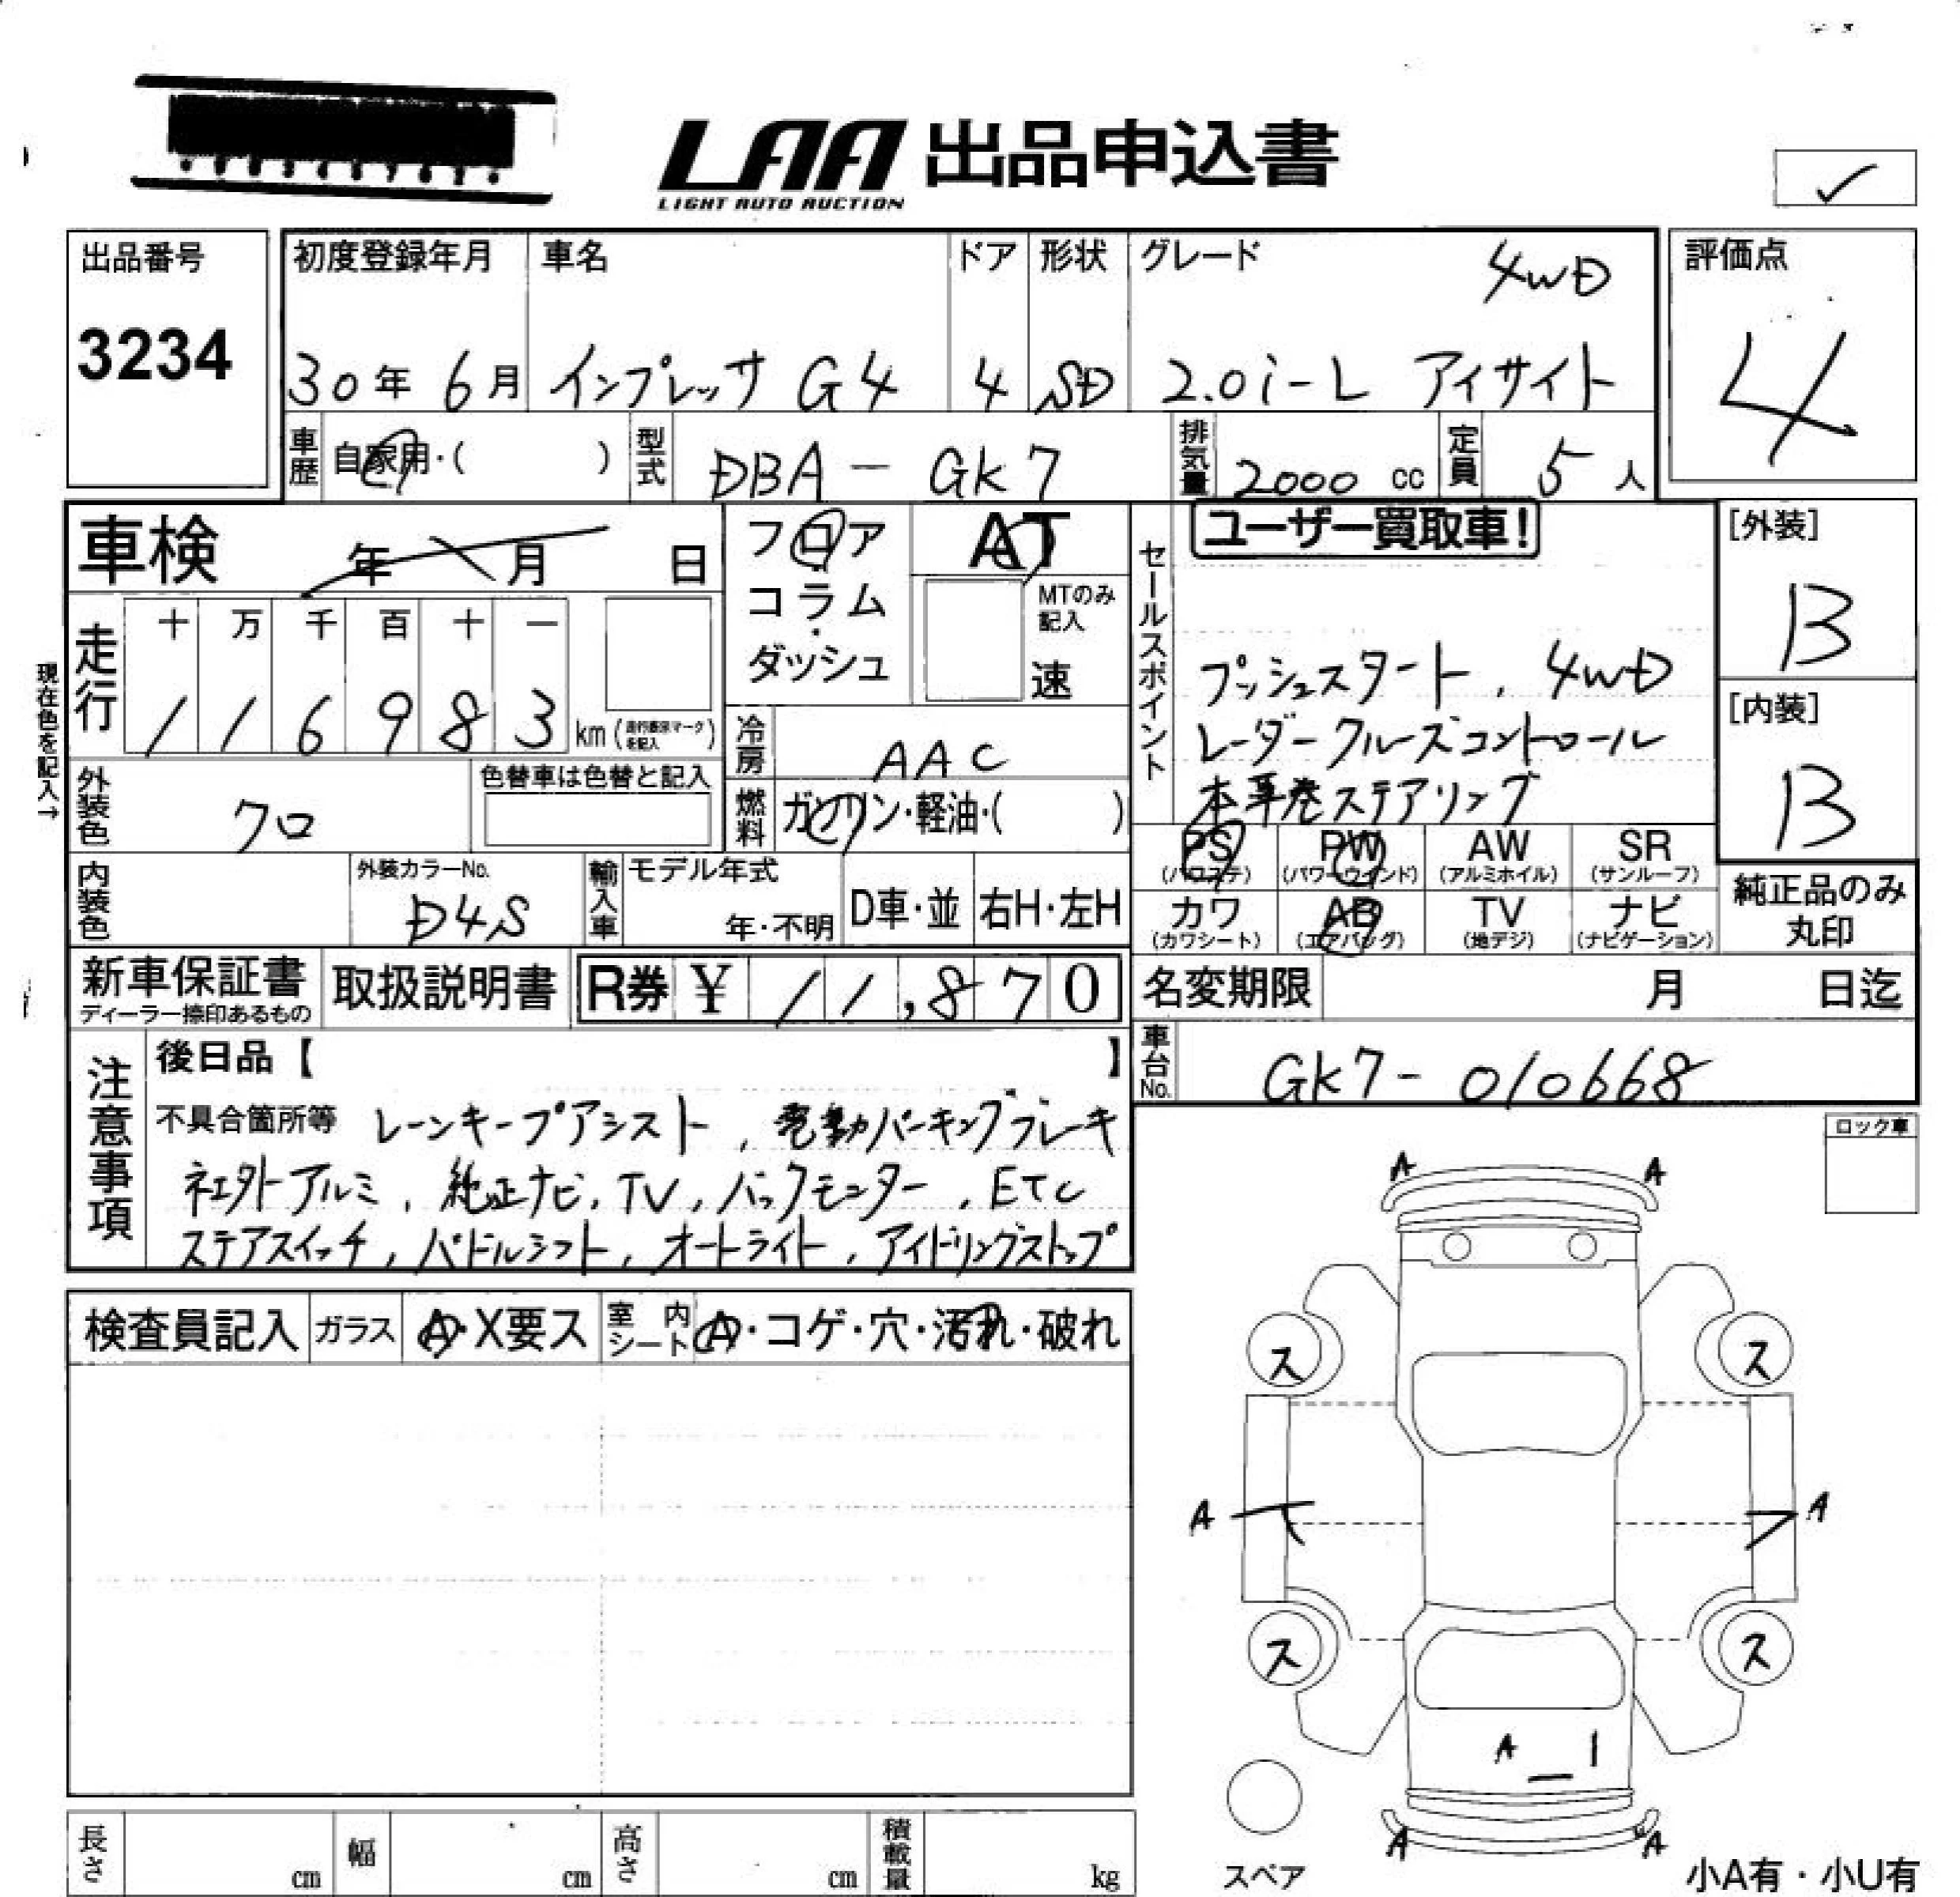 LAA 出品申込書
LIGHT AUTO AUCTION
✓
出品番号
3234
初度登録年月
30年 6月
車名
インプレッサ G4
ドア
4
形状
SD
グレード
4WD
2.0i-L アイサイト
評価点
4
車歴
自家用・( )
型式
DBA-GK7
排気量
2000 cc
定員
5 人
車検 年 月 日
走行
十 万 千 百 十 一
1 1 6 9 8 3 km
を記入
現在色を記入→
フロア
コラム・
ダッシュ
AT
MTのみ
記入
速
冷房
AAC
燃料
ガソリン・軽油・( )
セールスポイント
ユーザー買取車!
プッシュスタート, 4WD
レーダークルーズコントロール
本革巻ステアリング
[外装]
B
[内装]
B
外装色
クロ
色替車は色替と記入
内装色
外装カラーNo.
D4S
輸入車
モデル年式
年・不明
D車・並
右H・左H
PS
(パワステ)
PW
(パワーウインド)
AW
(アルミホイル)
SR
(サンルーフ)
カワ
(カワシート)
AB
(エアバッグ)
TV
(地デジ)
ナビ
(ナビゲーション)
純正品のみ
丸印
新車保証書
ディーラー捺印あるもの
取扱説明書
R券 ¥ 11,870
名変期限 月 日迄
車台No.
GK7-010668
注意事項
後日品【 】
不具合箇所等 レーンキープアシスト, 電動パーキングブレーキ
社外アルミ, 純正ナビ, TV, バックモニター, ETC
ステアスイッチ, パドルシフト, オートライト, アイドリングストップ
ロック車
検査員記入
ガラス
A・X要ス
室内
シート
A・コゲ・穴・汚れ・破れ
A A
ス ス
A A
ス ス
A
A A
スペア
小A有・小U有
長さ cm
幅 cm
高さ cm
積載量 kg